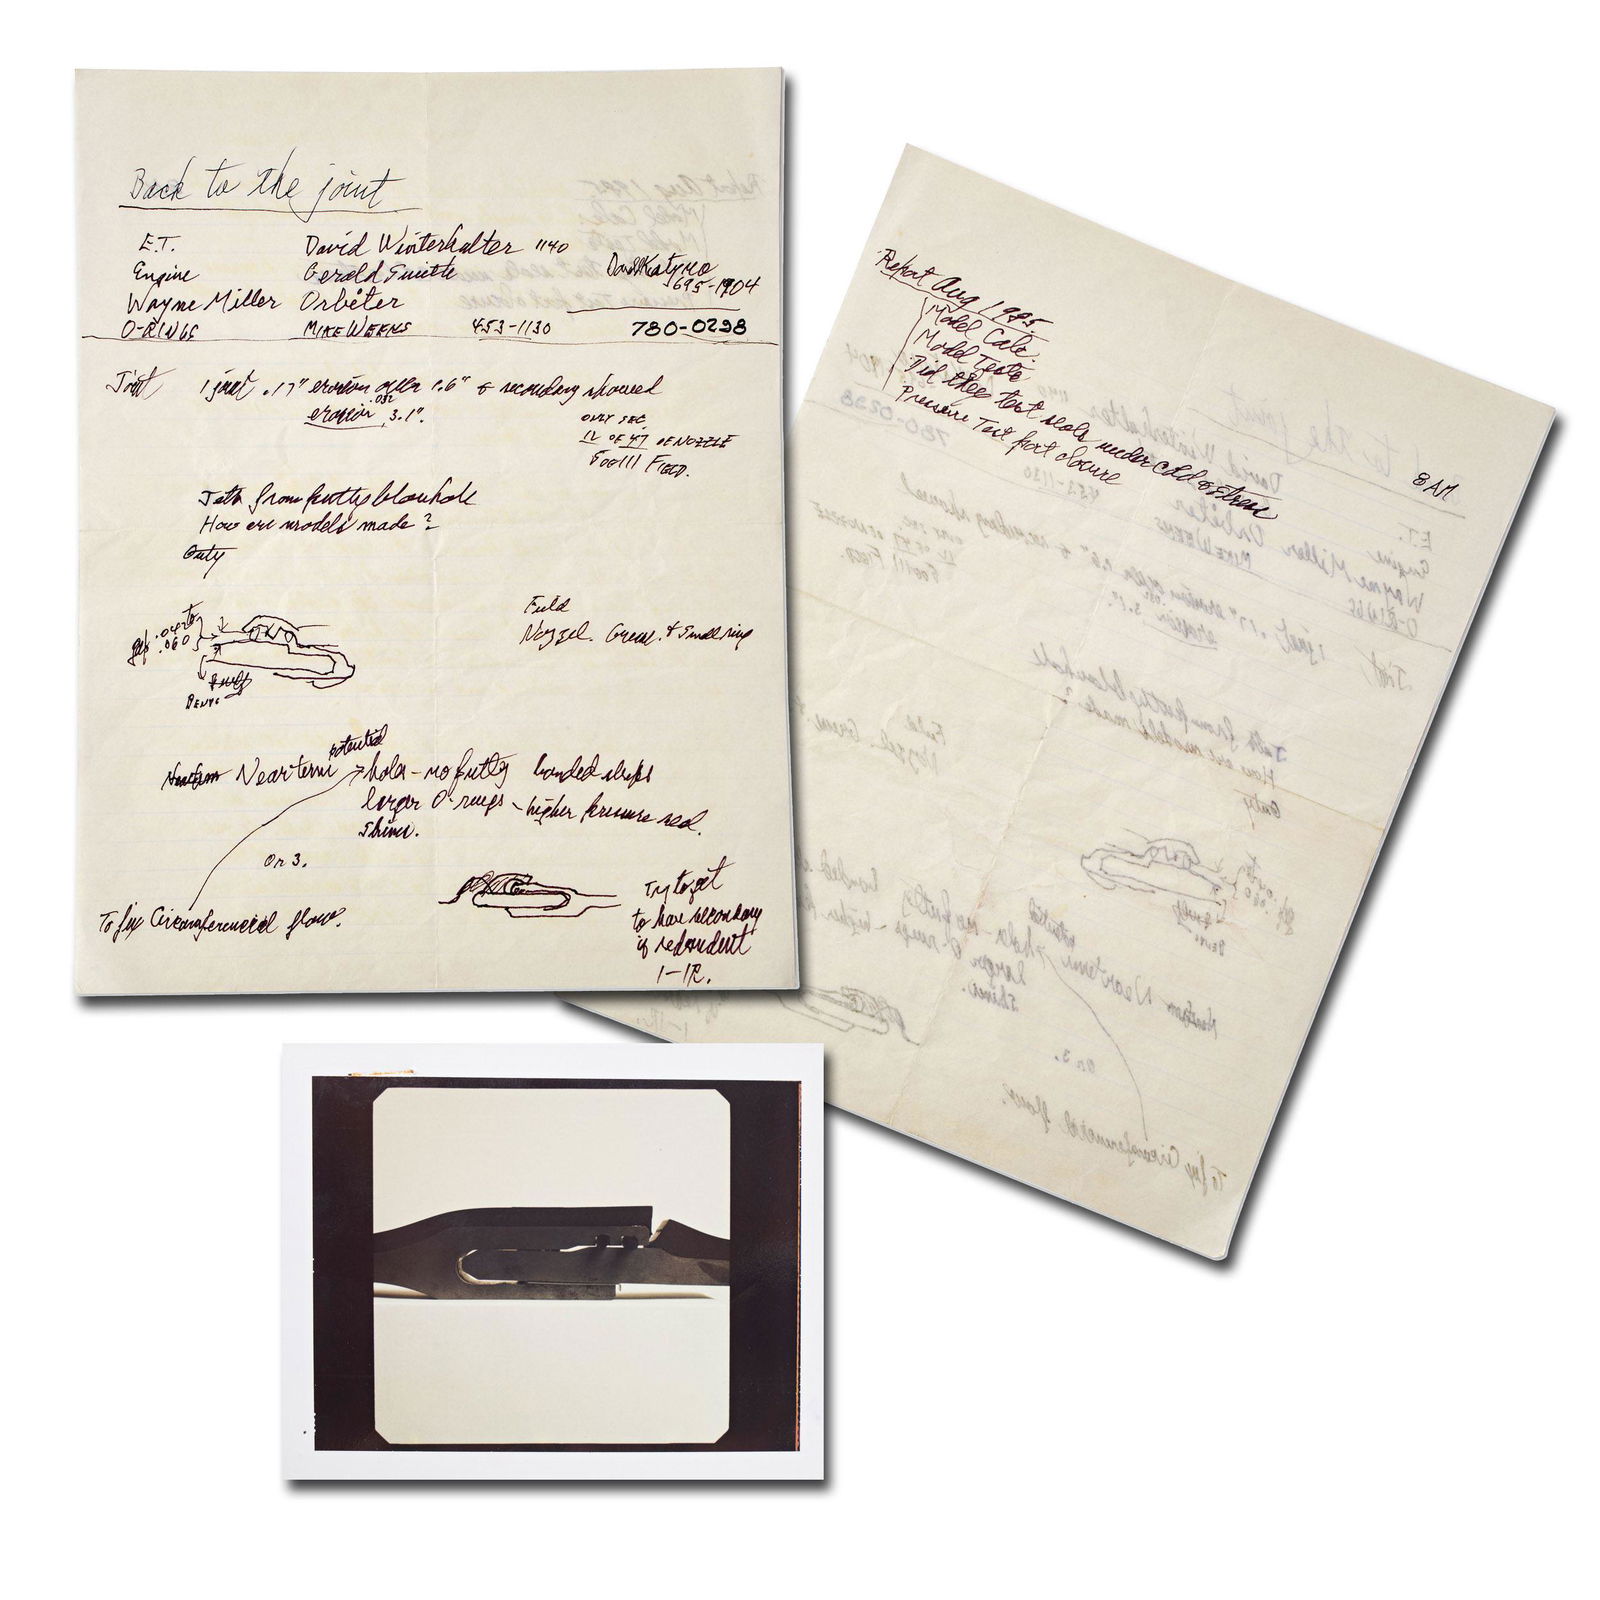 Back to the joint
E.T. David Winterhalter 1140
Engine Gerald Smith David Katyno
695-1904
Wayne Miller Orbiter
O-RINGS MIKE WEEKS 453-1130 780-0298
Joint 1 joint .17" erosion over 1.6" & secondary showed
erosion .032 3.1".
ONLY SEC
12 OF 47 NOZZLE
5 OF 111 FIELD.
Jets from putty blowhole
How are models made?
gap .060
Field
Nozzel. & Small ring
potential
Near term holes - no putty bonded
larger O-rings - higher pressure
Shims.
On 3.
To fix Circumferencial flow.
Try to get
to have secondary
if redundent
1-1R.
Report Aug 1985
Model Calc.
Model Tests
Did they test seals under cold & stress
Pressure Test port closure
8 AM